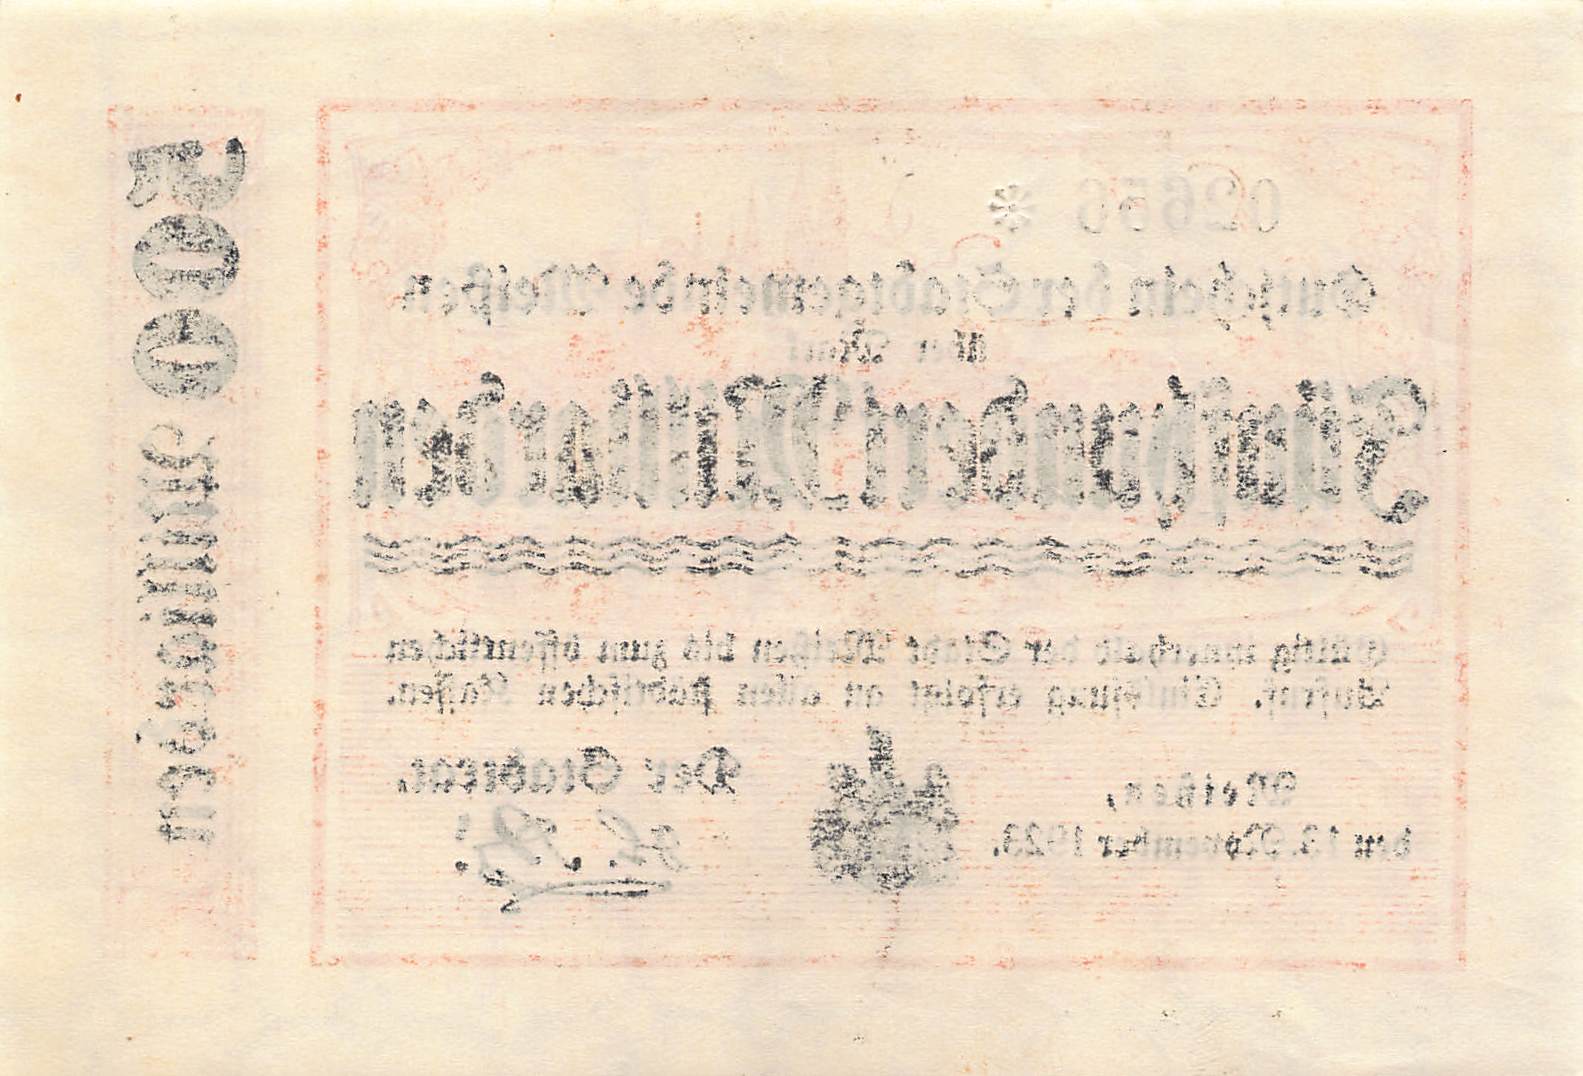 02656 *
Gutschein der Stadtgemeinde Meißen
über Mark
Fünfhundert Milliarden
Gültig innerhalb der Stadt Meißen bis zum öffentlichen
Aufruf. Einlösung erfolgt an allen städtischen Kassen.
Meißen,
den 13. November 1923.
Der Stadtrat.
500 Milliarden